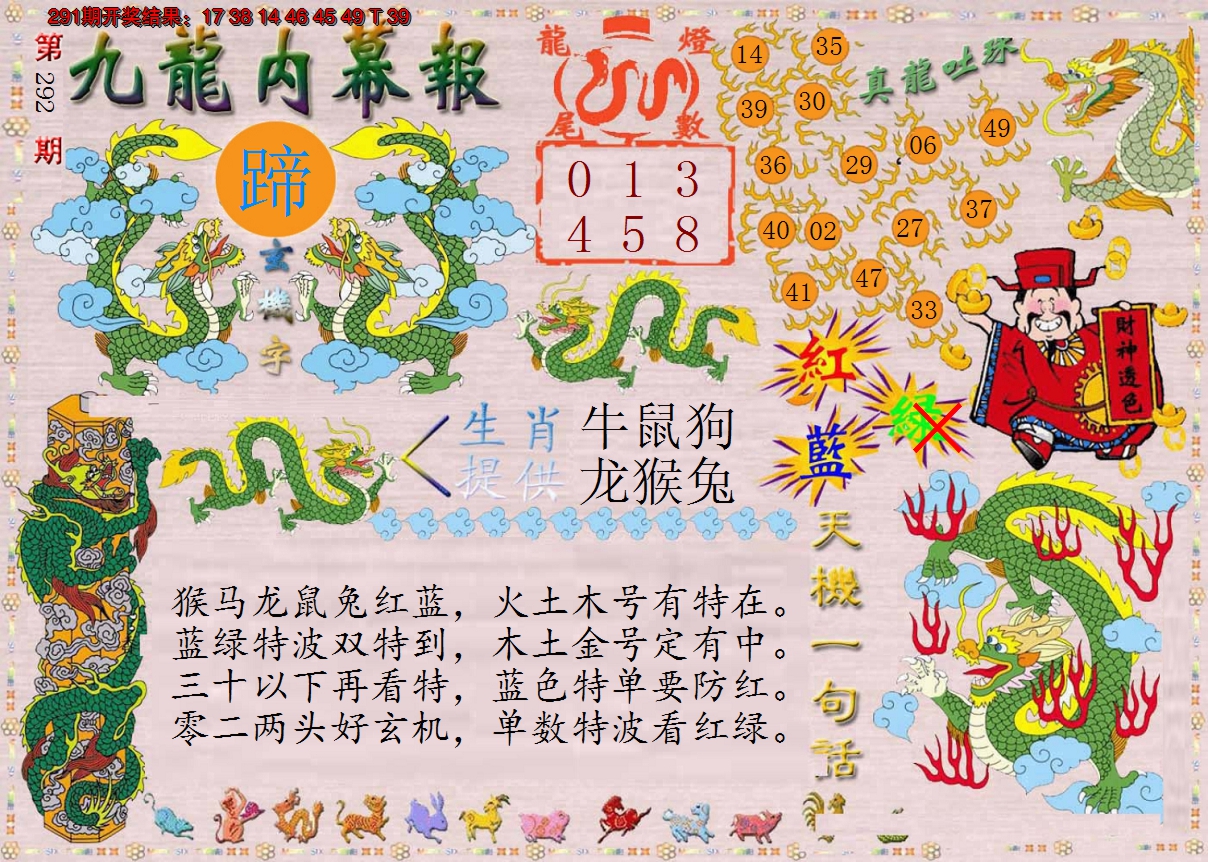 291期开奖结果：17 38 14 46 45 49 T 39
第292期
九龍内幕報
蹄
玄機字
龍燈尾數
0 1 3
4 5 8
真龍吐珠
14 35
39 30
36 29 06 49
40 02 27 37
41 47 33
財神透色
紅
绿
藍
生肖提供
牛鼠狗
龙猴兔
天機一句話
猴马龙鼠兔红蓝，火土木号有特在。
蓝绿特波双特到，木土金号定有中。
三十以下再看特，蓝色特单要防红。
零二两头好玄机，单数特波看红绿。